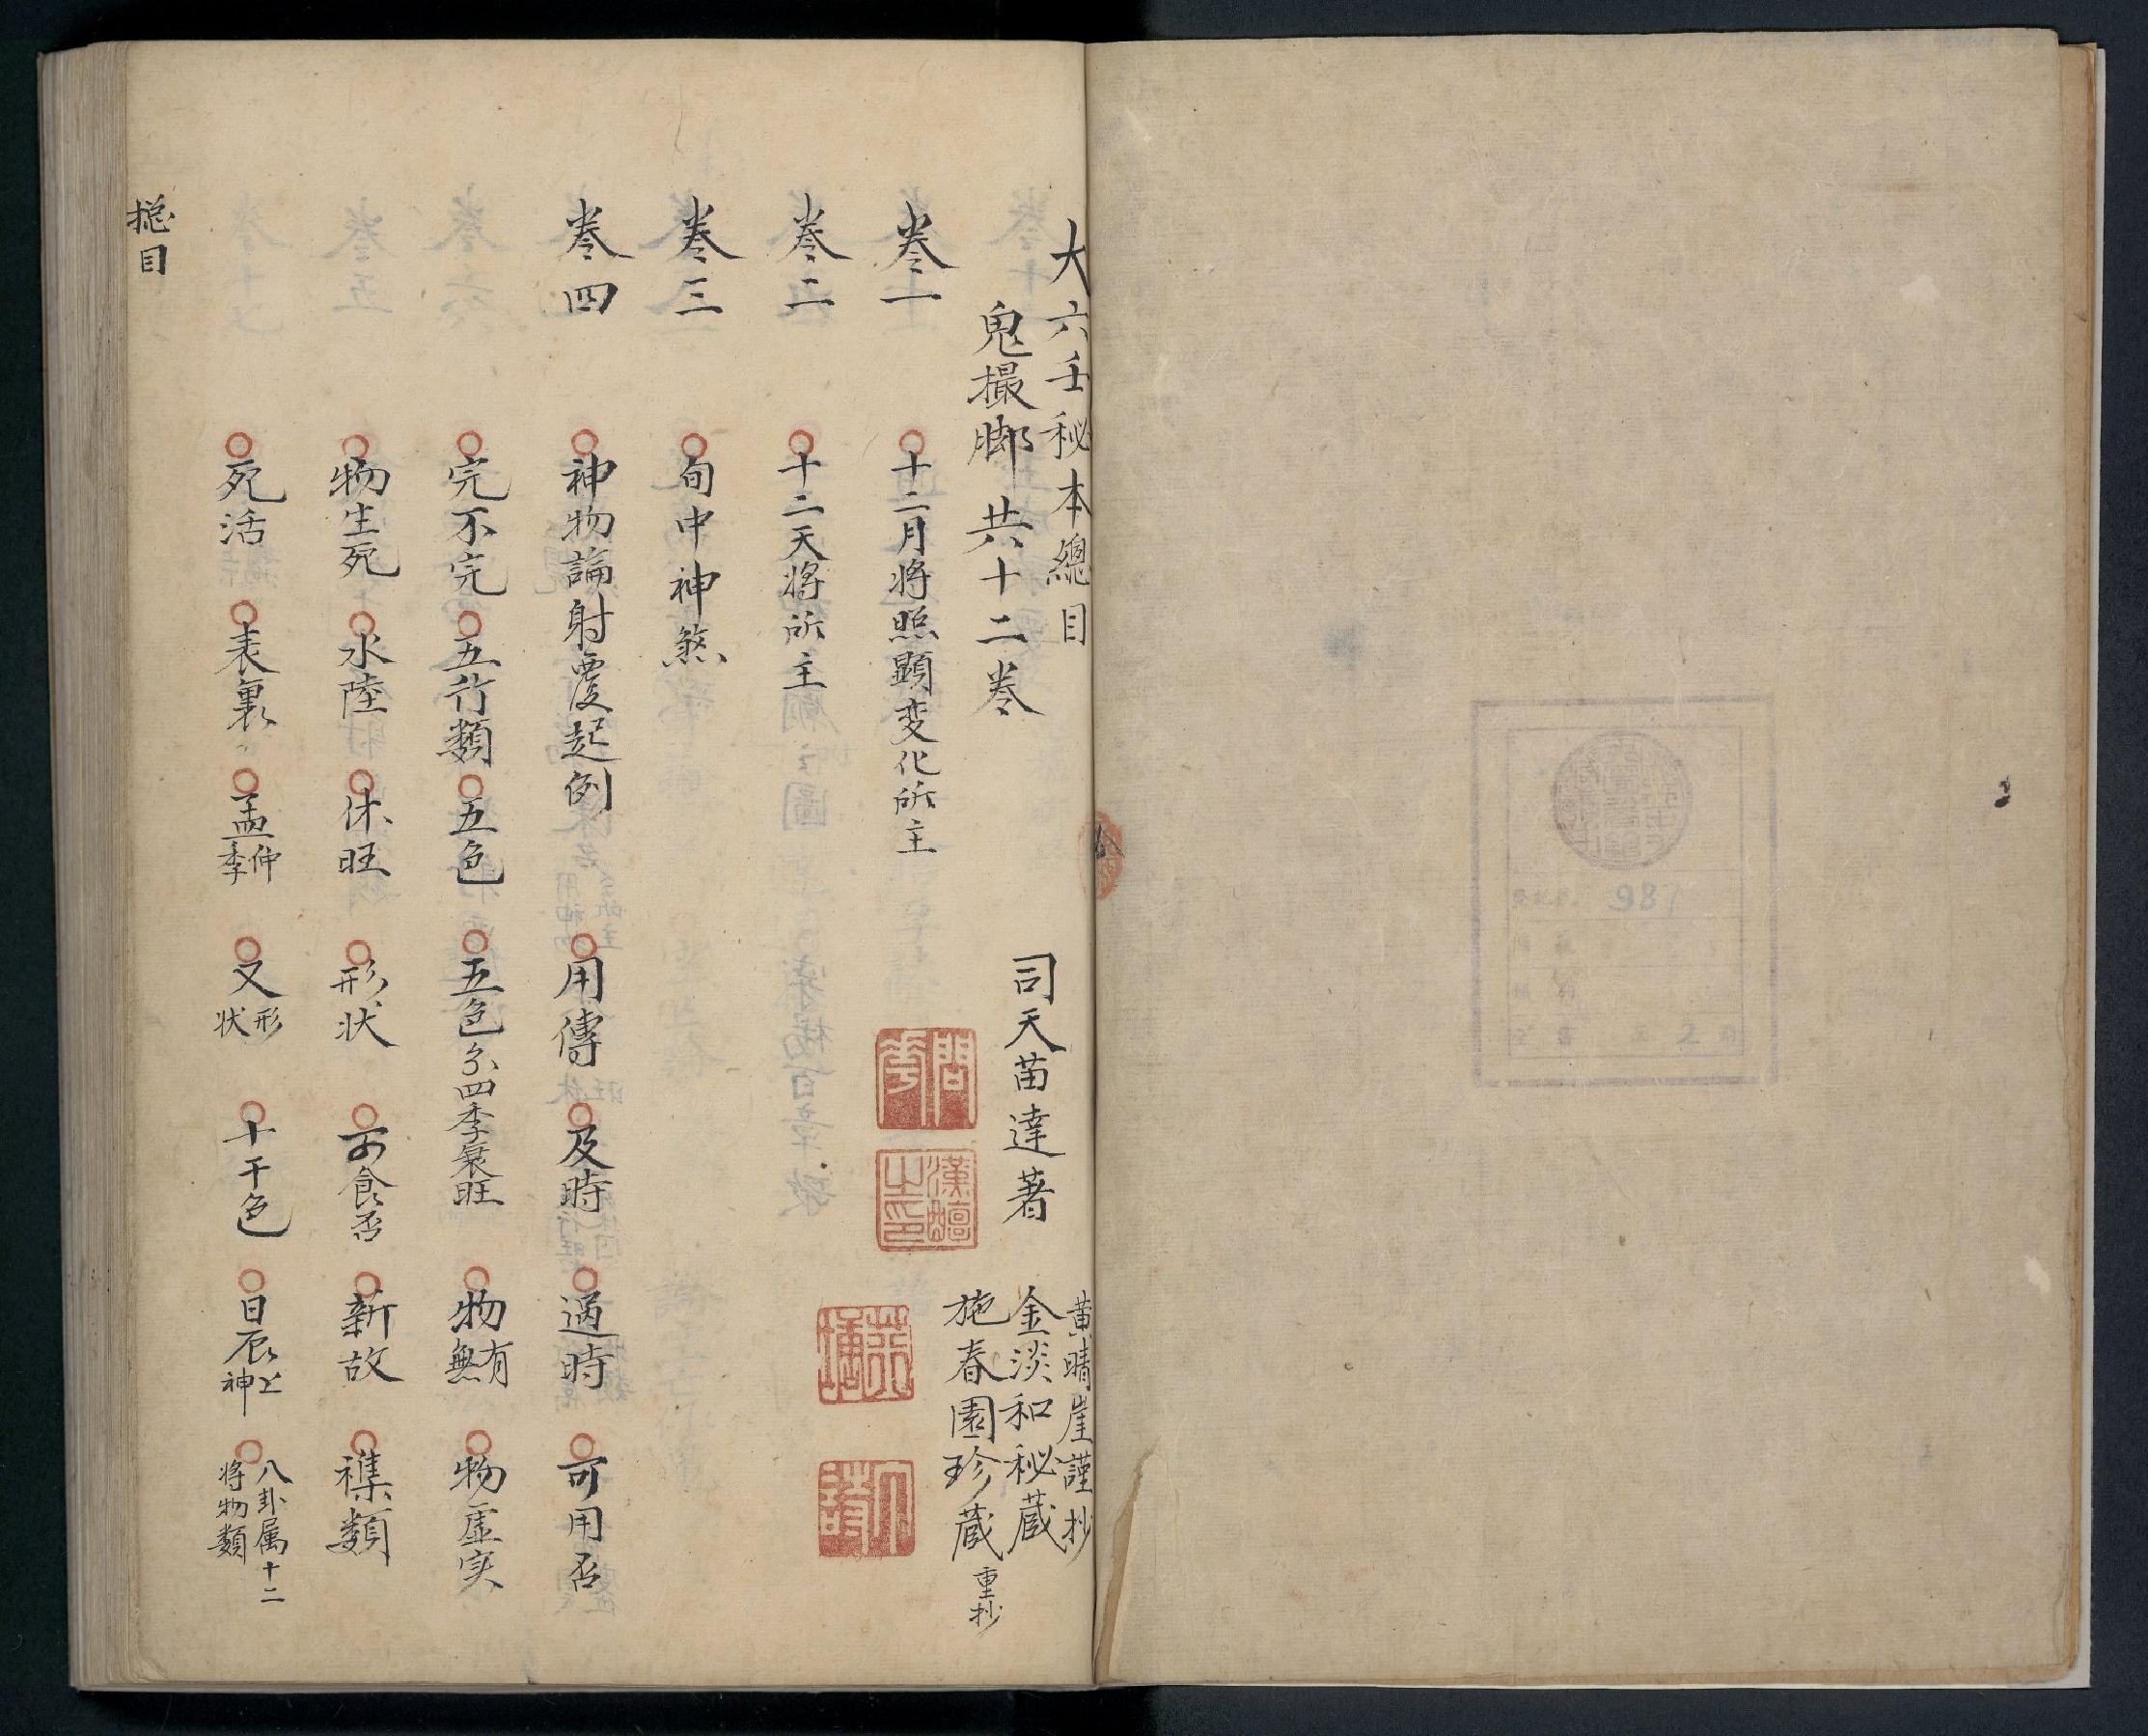 大六壬秘本總目
鬼撮脚 共十二卷
司天苗達著
黄晴崖謹抄
金淡和秘蔵
施春園珍蔵重抄
卷一 十二月将照顯变化所主
卷二 十二天将所主
卷三 旬中神煞
卷四 神物論射覆起例 用傳 及時 過時 可用否
完不完 五行類 五色 五色分四季衰旺 物有無 物虛实
物生死 水陸 休旺 形状 可食否 新故 襍類
死活 表裏 孟仲季 又形状 十干色 日辰上神 八卦属十二将物類
捴目
問
漢
之印
981
2